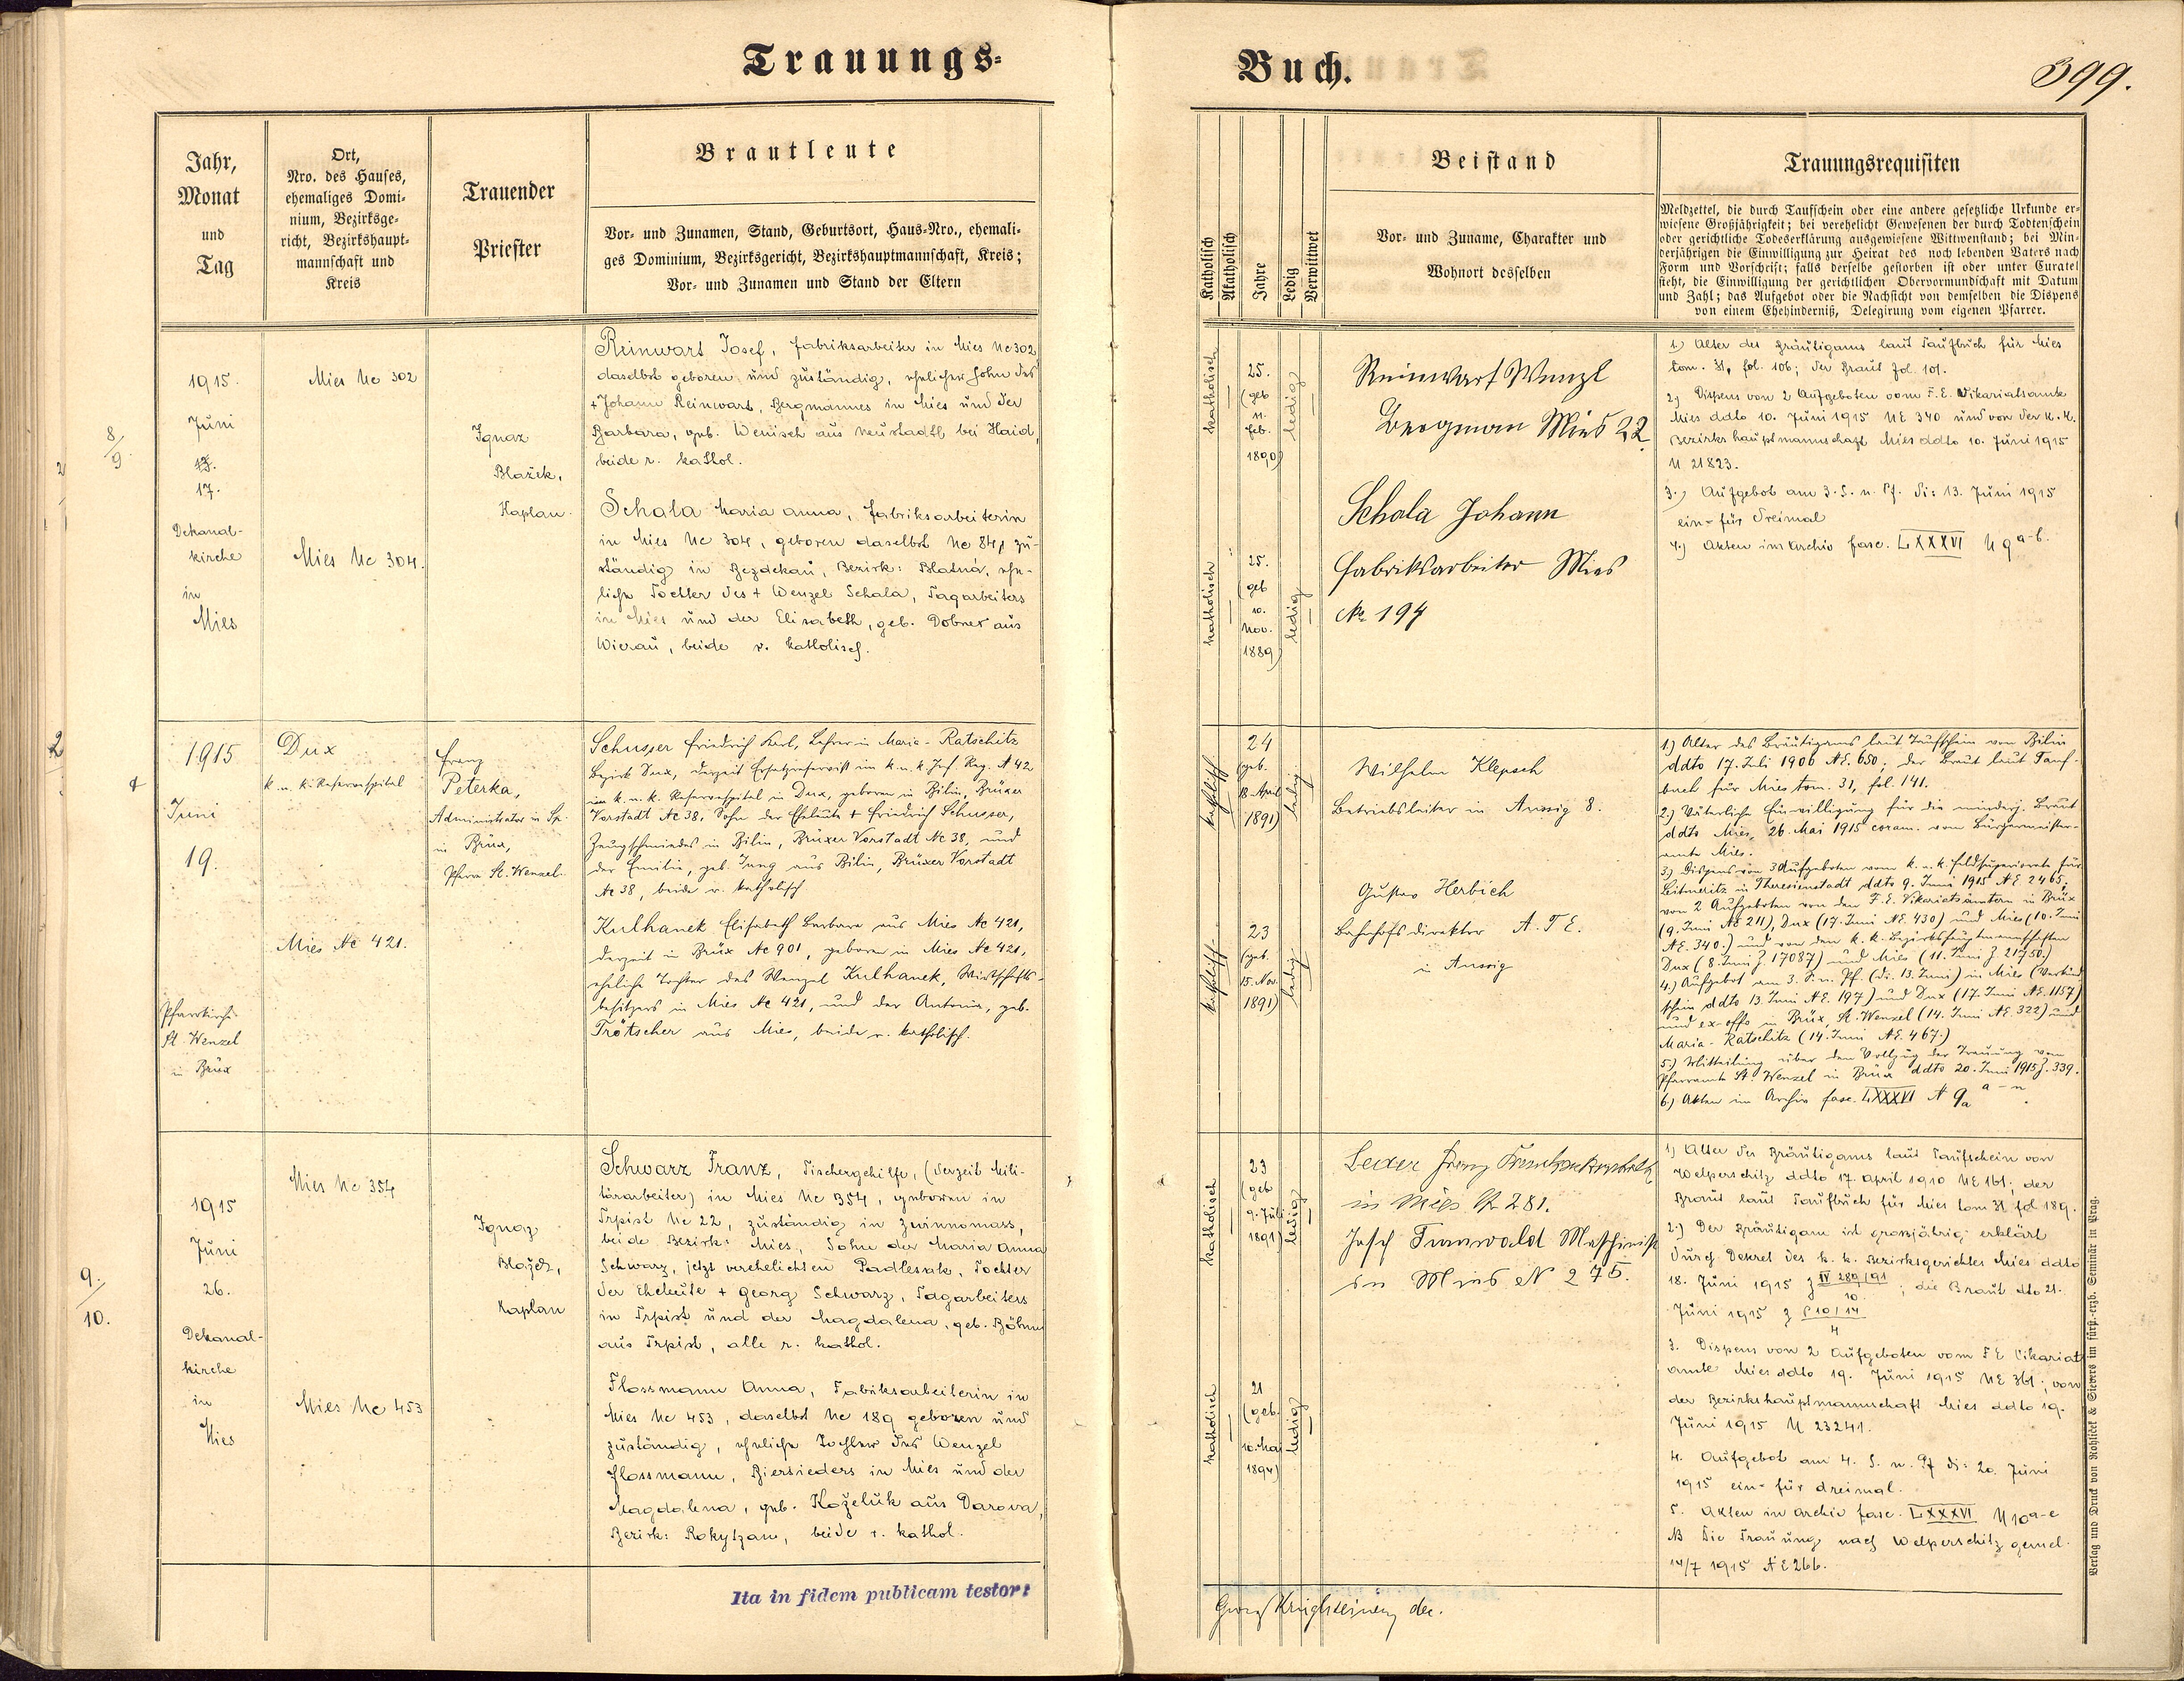 Trauungs-
Buch.
399.
Jahr,
Monat
und
Tag
Ort,
Nro. des Hauses,
ehemaliges Domi-
nium, Bezirksge-
richt, Bezirkshaupt-
mannschaft und
Kreis
Trauender
Priester
Brautleute
Vor- und Zunamen, Stand, Geburtsort, Haus-Nro., ehemali-
ges Dominium, Bezirksgericht, Bezirkshauptmannschaft, Kreis;
Vor- und Zunamen und Stand der Eltern
Katholisch
Akatholisch
Jahre
Ledig
Verwittwet
Beistand
Vor- und Zuname, Charakter und
Wohnort desselben
Trauungsrequisiten
Meldzettel, die durch Taufschein oder eine andere gesetzliche Urkunde er-
wiesene Großjährigkeit; bei verehelicht Gewesenen der durch Todtenschein
oder gerichtliche Todeserklärung ausgewiesene Wittwenstand; bei Min-
derjährigen die Einwilligung zur Heirat des noch lebenden Vaters nach
Form und Vorschrift; falls derselbe gestorben ist oder unter Curatel
steht, die Einwilligung der gerichtlichen Obervormundschaft mit Datum
und Zahl; das Aufgebot oder die Nachsicht von demselben die Dispens
von einem Ehehinderniß, Delegirung vom eigenen Pfarrer.
8/9.
1915.
Juni
17.
Dekanal-
kirche
in
Mies
Mies Nc 302
Mies Nc 304.
Ignaz
Blažek,
Kaplan.
Reinwart Josef, Fabriksarbeiter in Mies Nc 302
daselbst geboren und zuständig, ehelicher Sohn des
+ Johann Reinwart, Bergmannes in Mies und der
Barbara, geb. Wenisch aus Neustadtl bei Haid,
beide r. kathol.
Schala Maria Anna, Fabriksarbeiterin
in Mies Nc 304, geboren daselbst Nc 84, zu-
ständig in Bezdekau, Bezirk: Blatná, ehe-
liche Tochter des + Wenzel Schala, Tagarbeiters
in Mies und der Elisabeth, geb. Dobner aus
Wierau, beide r. katholisch.
katholisch
25.
(geb
11.
Feb.
1890)
ledig
katholisch
25.
(geb
10.
Nov.
1889)
ledig
Reinwart Wenzl
Bergman Mies 22
Schala Johann
Fabriksarbeiter Mies
No 194
1.) Alter des Bräutigams laut Taufbuch für Mies
tom. 31, fol. 106; der Braut fol. 101.
2.) Dispens von 2 Aufgeboten vom F. E. Vikariatsamte
Mies ddto 10. Juni 1915 NE 340 und von der k. k.
Bezirkshauptmannschaft Mies ddto 10. Juni 1915
N 21823.
3.) Aufgebot am 3. S. n. Pf. di: 13. Juni 1915
ein- für dreimal
4.) Akten im Archiv fasc. LXXXVI N 9 a-b.
1915
Juni
19.
Pfarrkirche
St. Wenzel
in Brüx
Dux
k. u. k. Reservespital
Mies Nc 421.
Franz
Peterka,
Administrator in Sp.
in Brüx,
Pfarre St. Wenzel.
Schusser Friedrich Karl, Lehrer in Maria-Ratschitz
Bezirk Dux, derzeit Ersatzreservist im k. u. k. Inf. Reg. N 42
im k. u. k. Reservespital in Dux, geboren in Bilin, Brüxer
Vorstadt Nc 38, Sohn der Eheleute + Friedrich Schusser,
Zeugschmiedes in Bilin, Brüxer Vorstadt Nc 38, und
der Emilie, geb. Jung aus Bilin, Brüxer Vorstadt
Nc 38, beide r. katholisch
Kulhanek Elisabeth Barbara aus Mies Nc 421,
derzeit in Brüx Nc 901, geboren in Mies Nc 421,
eheliche Tochter des Wenzel Kulhanek, Wirtschafts-
besitzers in Mies Nc 421, und der Antonia, geb.
Trötscher aus Mies, beide r. katholisch.
katholisch
24
(geb.
18. April
1891)
ledig
katholisch
23
(geb.
15. Nov.
1891)
ledig
Wilhelm Klepsch
Betriebsleiter in Aussig 8.
Gustav Herbich
Bahnhofsdirektor A. T E.
in Aussig
1.) Alter des Bräutigams laut Taufschein von Bilin
ddto 17. Juli 1906 NE. 650; der Braut laut Tauf-
buch für Mies tom. 31, fol. 141.
2.) Väterliche Einwilligung für die minderj. Braut
ddto Mies, 26. Mai 1915 coram. vom Bürgermeister-
amte Mies.
3.) Dispens von 3 Aufgeboten vom k. u. k. Feldsuperiorate für
Leitmeritz in Theresienstadt ddto 9. Juni 1915 NE 2465,
von 2 Aufgeboten von den F. E. Vikariatsämtern in Brüx
(9. Juni NE 211), Dux (17. Juni NE. 430) und Mies (10. Juni
NE. 340.) und von den k. k. Bezirkshauptmannschaften
Dux (8. Juni Z 17087) und Mies (11. Juni Z 21750.)
4.) Aufgebot am 3. S. n. Pf. (di. 13. Juni) in Mies (Verkünd-
schein ddto 13 Juni NE. 197) und Dux (17. Juni NE. 1157)
und ex-offo in Brüx, St. Wenzel (14. Juni NE. 322) und
Maria-Ratschitz (14. Juni NE. 467.)
5.) Mitteilung über den Vollzug der Trauung vom
Pfarramte St. Wenzel in Brüx ddto 20. Juni 1915 Z. 339.
6.) Akten im Archiv fasc. LXXXVI N 9a a-n.
9./10.
1915
Juni
26.
Dekanal-
kirche
in
Mies
Mies Nc 354
Mies Nc 453
Ignaz
Blažek,
Kaplan
Schwarz Franz, Tischergehilfe, (derzeit Mili-
tärarbeiter) in Mies Nc 354, geboren in
Trpist Nc 22, zuständig in Zwinnomass,
beide Bezirk: Mies, Sohn der Maria Anna
Schwarz, jetzt verehelichten Padlesak, Tochter
der Eheleute + Georg Schwarz, Tagarbeiters
in Trpist und der Magdalena, geb. Böhm
aus Trpist, alle r. kathol.
Flossmann Anna, Fabriksarbeiterin in
Mies Nc 453, daselbst Nc 189 geboren und
zuständig, eheliche Tochter des Wenzel
Flossmann, Biersieders in Mies und der
Magdalena, geb. Koželuk aus Darova,
Bezirk: Rokytzan, beide r. kathol.
katholisch
23
(geb
9. Juli
1891)
ledig
katholisch
21
(geb.
10. Mai
1894)
ledig
Lexer Franz
in Mies Nr 281.
Josef Tunwald Maschinist
in Mies N 275.
1.) Alter des Bräutigams laut Taufschein von
Welperschitz ddto 17. April 1910 NE 161; der
Braut laut Taufbuch für Mies tom 31 fol 189.
2.) Der Bräutigam ist grossjährig erklärt
durch Dekret des k. k. Bezirksgerichtes Mies ddto
18. Juni 1915 Z IV 280/91 10.; die Braut dto 21.
Juni 1915 Z P 10/14 4
3. Dispens von 2 Aufgeboten vom F E Vikariat
amte Mies ddto 19. Juni 1915 NE 361; von
der Bezirkshauptmannschaft Mies ddto 19.
Juni 1915 N 23241.
4. Aufgebot am 4. S. n. Pf di: 20. Juni
1915 ein- für dreimal.
5. Akten in Archiv fasc. LXXXVI N 10 a-e
NB Die Trauung nach Welperschitz gemel.
14/7 1915 NE 266.
Ita in fidem publicam testor:
Georg Krieglsteiner dec.
Verlag und Druck von Rohlíček & Sievers im fürst.-erzb. Seminär in Prag.